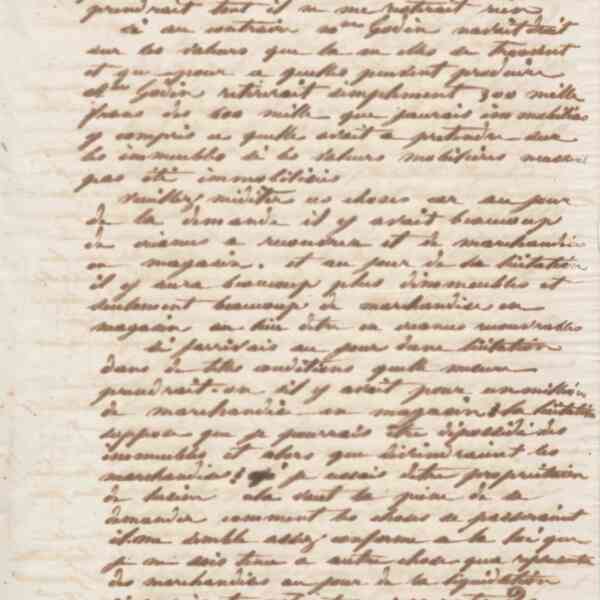 prendrait tout il ne me resterait rien
si au contraire Mme Godin n'avait droit
sur les valeurs que la ou elles se trouvent
et que pour ce quelles peuvent produire
Mme Godin retirerait simplement 300 mille
francs des 600 mille que j'aurais immobilisés
y compris ce quelle avait a pretendre sur
les immeubles si les valeurs mobilières neussent
pas été immobilisées
Veuillez méditer ces choses car au jour
de la demande il y avait beaucoup
de créances a recouvrer et de marchandises
en magasin. et au jour de la licitation
il y aura beaucoup plus d'immeubles et
seulement beaucoup de marchandises en
magasin au lieu detre en creances recouvrables
si j'arrivais au jour dune licitation
dans de telles conditions quelle mesure
prendrait-on il y avait pour un million
de marchandise en magasin & la licitation
suppose que je pourrais être dépossédé des
immeubles et alors que deviendraient les
marchandises ? si je cessais d'etre propriétaire
de lusine cela vaut la peine de se
demander comment les choses se passeraient
il me semble assez conforme a la loi que
je ne sois tenu a autre chose que représenter
des marchandises au jour de la liquidation